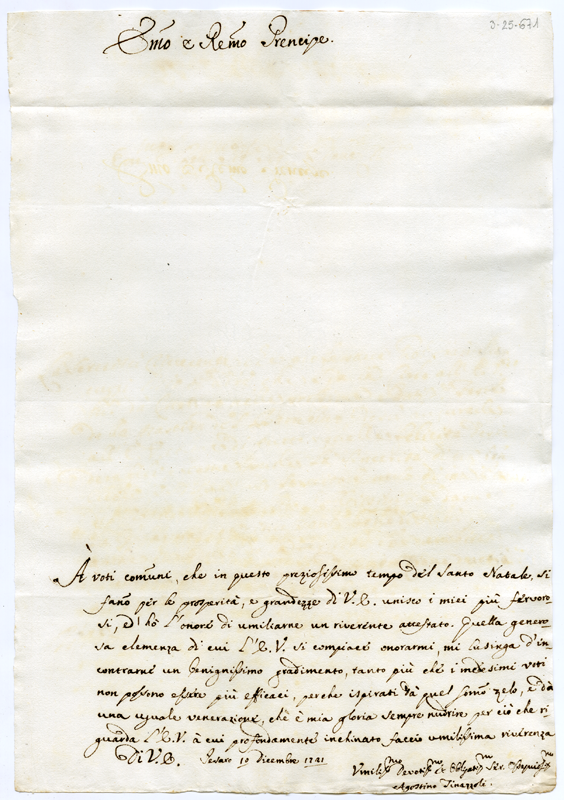 3-25-671
Emo e Remo Prencipe.
À voti comuni, che in questo preziosissimo tempo del Santo Natale, si
fano per le prosperità, e grandezze di V. E. unisco i miei più fervoro-
si, ed hò l'onore di umiliarne un riverente attestato. Quella genero
sa clemenza di cui l'E. V. si compiace onorarmi, mi lusinga d'in-
contrarne un benignissimo gradimento, tanto più che i medesimi voti
non possono essere più efficaci, perche ispirati da quel somo zelo, e dà
una uguale venerazione, che è mia gloria sempre nudrire per ciò che ri
guarda l'E. V. à cui profondamente inchinato faccio umilissima riverenza
Di V. E. Pesaro 10 Dicembre 1741
Umilissmo Devotissm et Obligatissm Ser.
Agostino Tinazzoli.